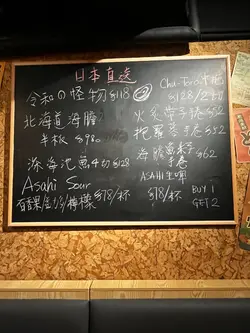 日本直送
令和の怪物 $118
北海道海膽
半板 $980
深海池魚4切 $128
Asahi Sour
百香果/金桔/檸檬 $78/杯
Chu Toro
$128/2切
火炙帶子手卷 $52
海膽魚子手卷 $62
ASAHI生啤
$78/杯
BUY 1
GET 2